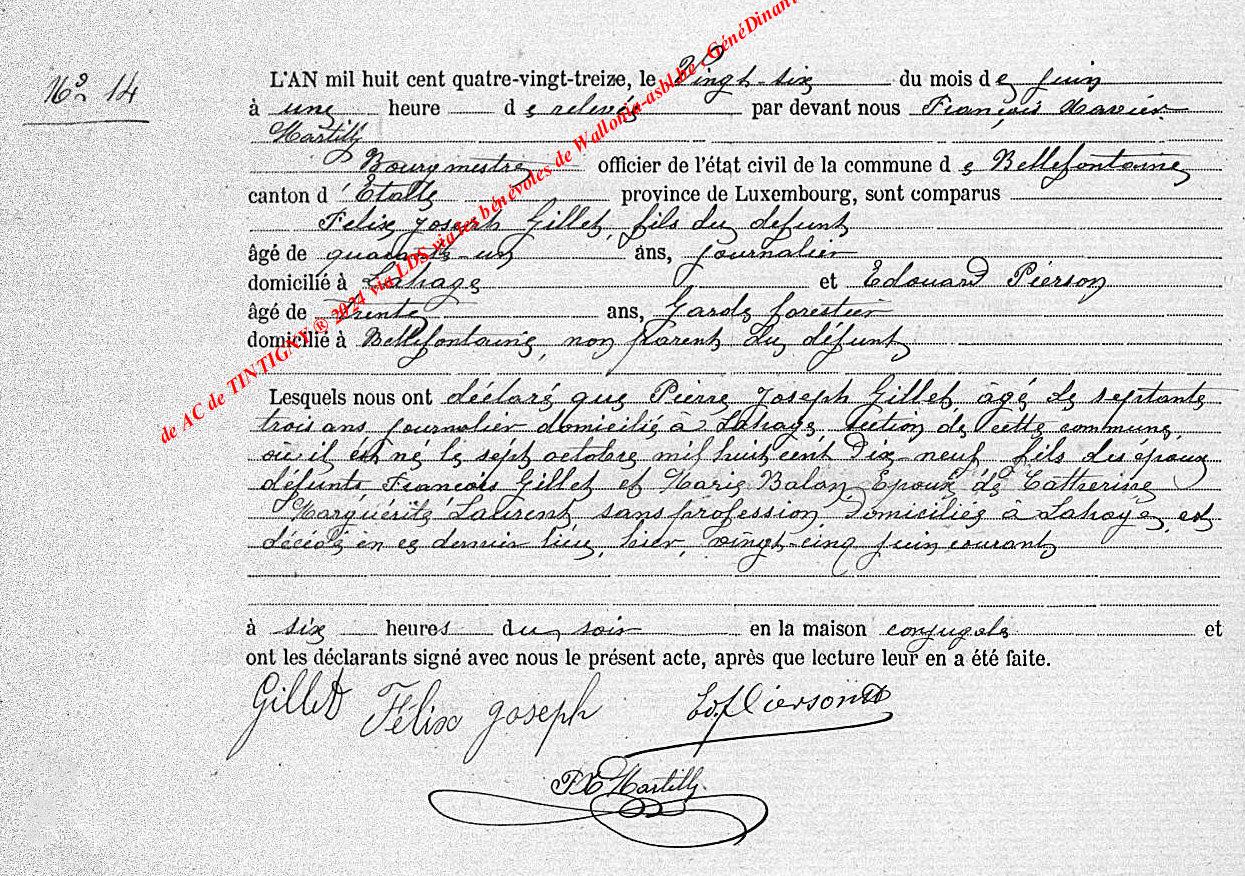 N° 14
L'AN mil huit cent quatre-vingt-treize, le Vingt-six du mois de juin
à une heure de relevée par devant nous François Xavier
Martilly
Bourgmestre officier de l'état civil de la commune de Bellefontaine
canton d'Etalle province de Luxembourg, sont comparus
Felix Joseph Gillet, fils du defunt
âgé de quarante un ans, journalier
domicilié à Lahage et Edouard Pierson
âgé de Trente ans, Garde forestier
domicilié à Bellefontaine, non parent du défunt
Lesquels nous ont déclaré que Pierre Joseph Gillet âgé de septante
trois ans journalier domicilié à Lahage, section de cette commune,
où il est né le sept octobre mil huit cent Dix-neuf fils des époux
défunts François Gillet et Marie Balon, Epoux de Catherine
Marguerite Laurent, sans profession, Domiciliée à Lahage, est
décédé en ce dernier lieu, hier, vingt-cinq juin courant
à six heures du soir en la maison conjugale et
ont les déclarants signé avec nous le présent acte, après que lecture leur en a été faite.
Gillet Félix Joseph Ed. Pierson
F X Martilly.
de AC de TINTIGNY ® 2021 via LDS via les bénévoles de Wallonia-asbl.be - GénéDinant